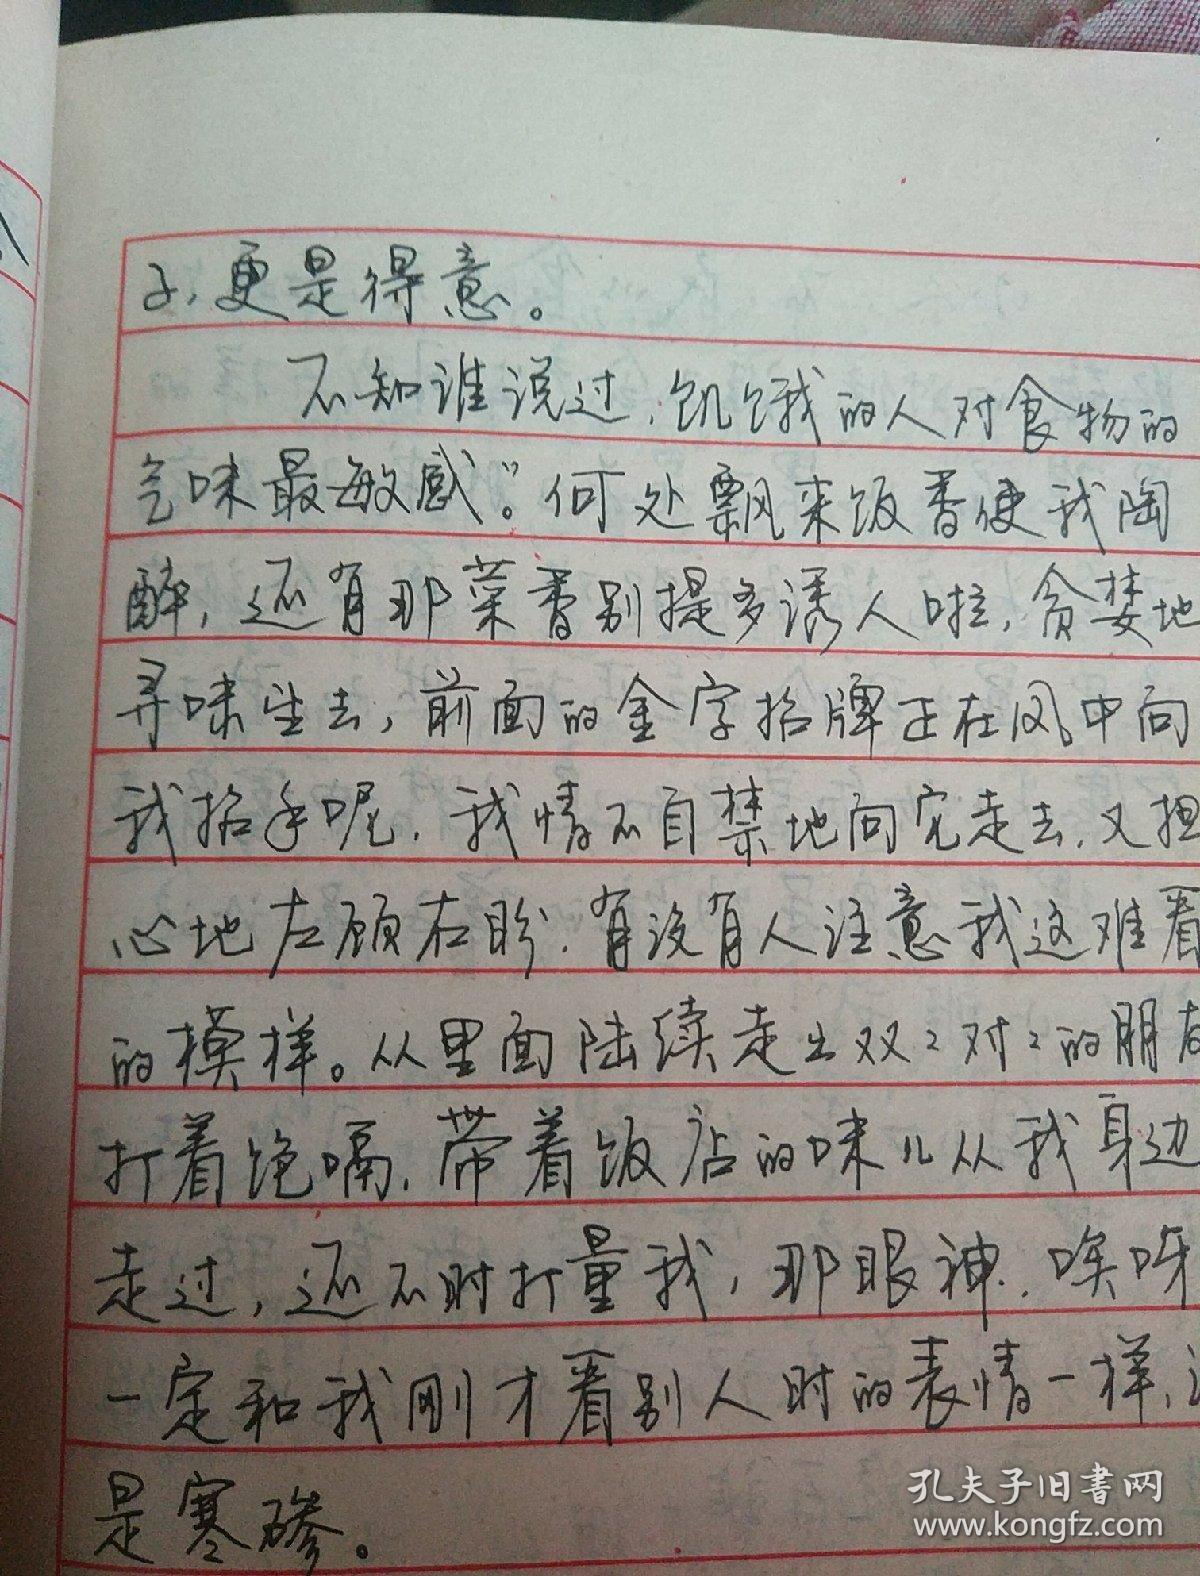 子，更是得意。
不知谁说过，饥饿的人对食物的
气味最敏感”。何处飘来饭香使我陶
醉，还有那菜香别提多诱人啦，贪婪地
寻味生去，前面的金字招牌正在风中向
我招手呢，我情不自禁地向它走去，又担
心地左顾右盼，有没有人注意我这难看
的模样。从里面陆续走出双々对々的朋友
打着饱嗝，带着饭店的味儿从我身边
走过，还不时打量我，那眼神，唉呀
一定和我刚才看别人时的表情一样，
是寒碜。
孔夫子旧书网
www.kongfz.com